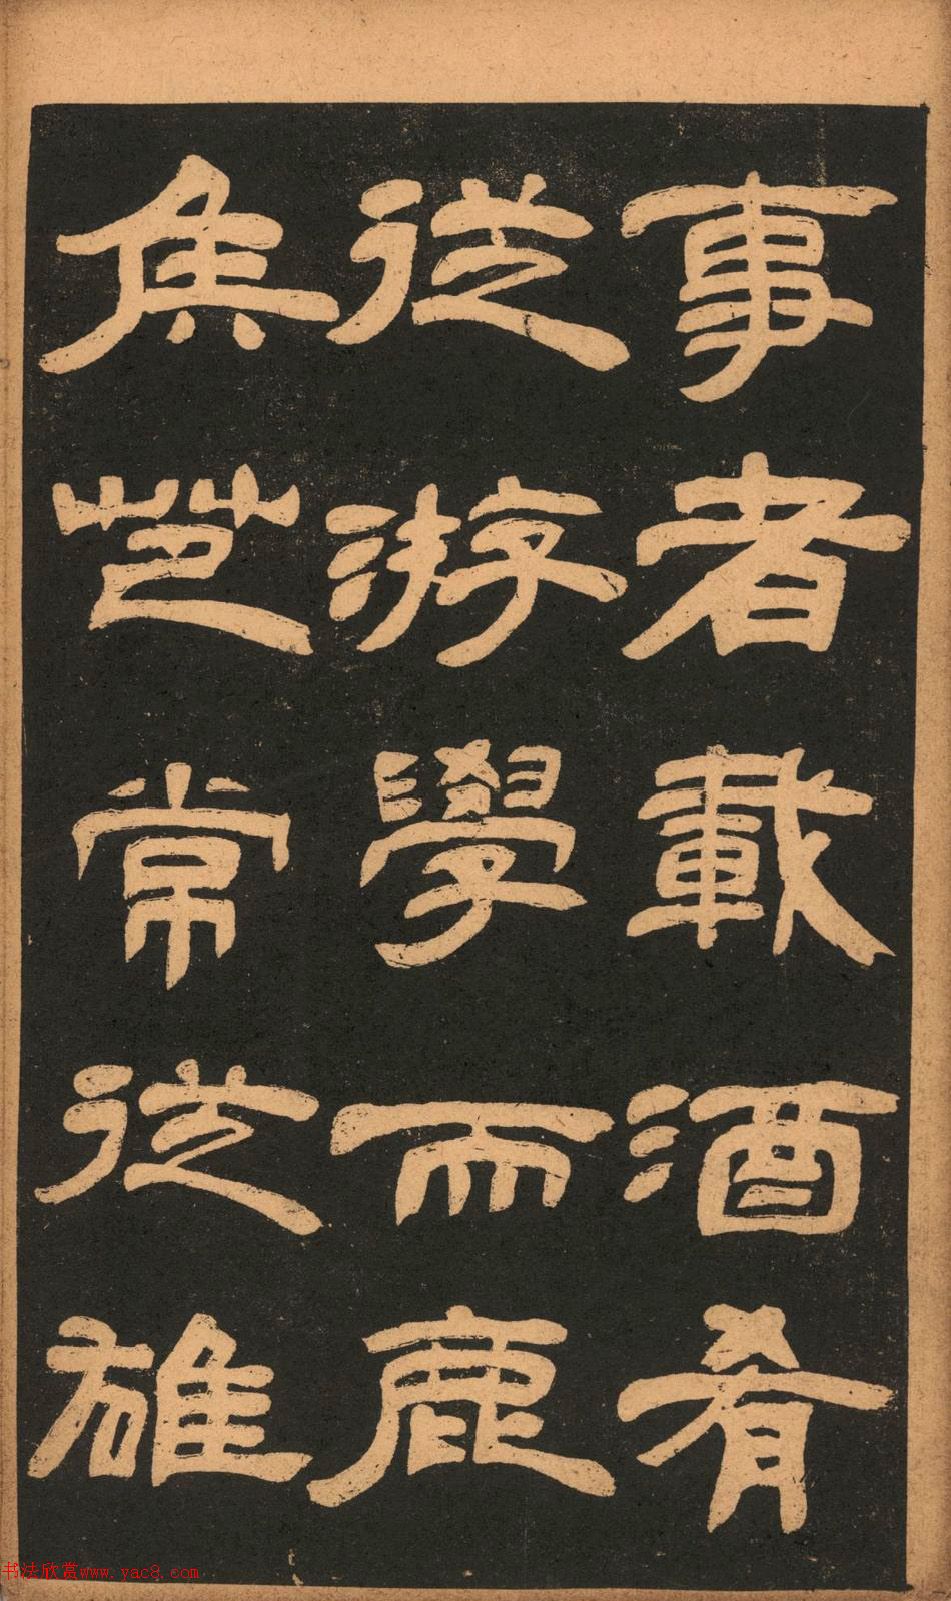 事者載酒肴
從游學而鹿
矦芭常從雄
书法欣赏www.yac8.com